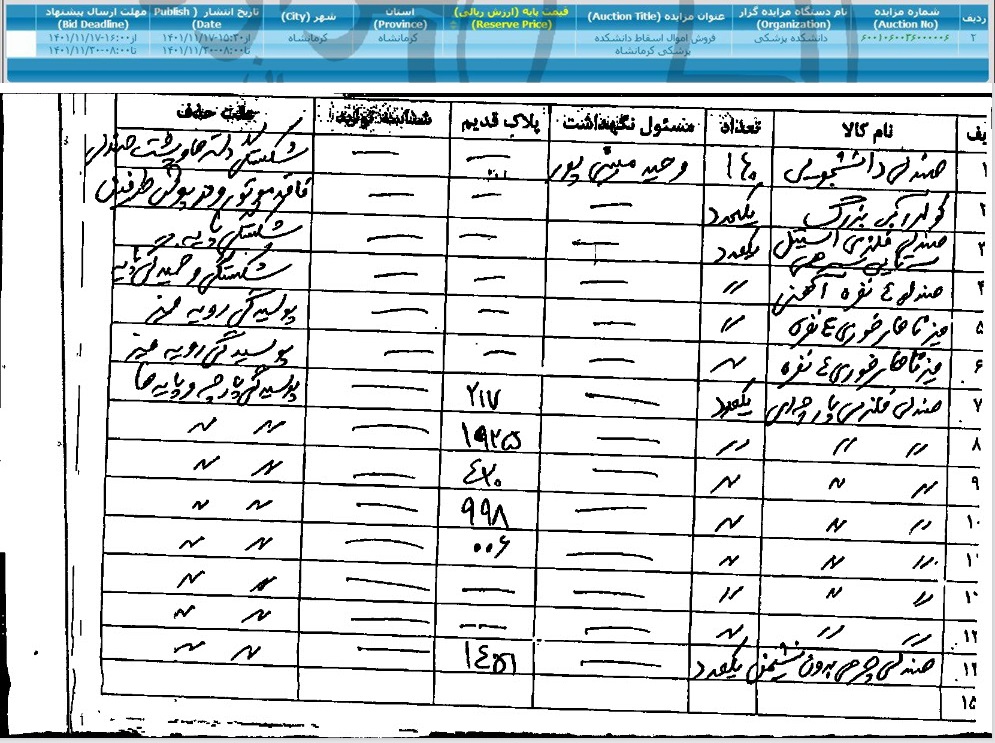 ردیف شماره مزایده (Auction No) نام دستگاه مزایده گزار (Organization) عنوان مزایده (Auction Title) قیمت پایه (ارزش ریالی) (Reserve Price) استان (Province) شهر (City) تاریخ انتشار (Publish Date) مهلت ارسال پیشنهاد (Bid Deadline)
۲ ۶۰۰۱۰۶۰۰۳۶۰۰۰۰۰۶ دانشکده پزشکی فروش اموال اسقاط دانشکده پزشکی کرمانشاه کرمانشاه کرمانشاه از۱۵:۳۰-۱۴۰۱/۱۱/۱۷ تا۰۸:۰۰-۱۴۰۱/۱۱/۲۰ از۱۶:۰۰-۱۴۰۱/۱۱/۱۷ تا۰۸:۰۰-۱۴۰۱/۱۱/۳۰
یف نام کالا تعداد مسئول نگهداشت پلاک قدیم شناسه تولید علت حذف
۱ صندلی دانشجویی ۱۶۰ وحید متین پور — — شکستگی دسته ها و پشت صندلی
۲ کولر آبی بزرگ یکعدد — — — فاقد موتور و
۳ صندلی فلزی استیل یکعدد — — — شکستگی پایه
۴ صندلی ۴ نفره " — — — شکستگی و خمیدگی پایه
۵ میز ناهارخوری ۴ نفره " — — — پوسیدگی رویه میز
۶ میز ناهارخوری ۴ نفره " — — — پوسیدگی رویه میز
۷ صندلی فلزی پارچه ای یکعدد — ۲۱۷ — پوسیدگی پارچه و پایه ها
۸ " " " — ۱۹۲۵ — " "
۹ " " " — ۴۳۰ — " "
۱۰ " " " — ۹۹۸ — " "
۱ " " " — ۰۰۶ — " "
۱ " " " — — — " "
۱۳ " " " — — — " "
صندلی چرمی بدون نشیمن یکعدد — ۱۴۵۱ — " "
۱۵